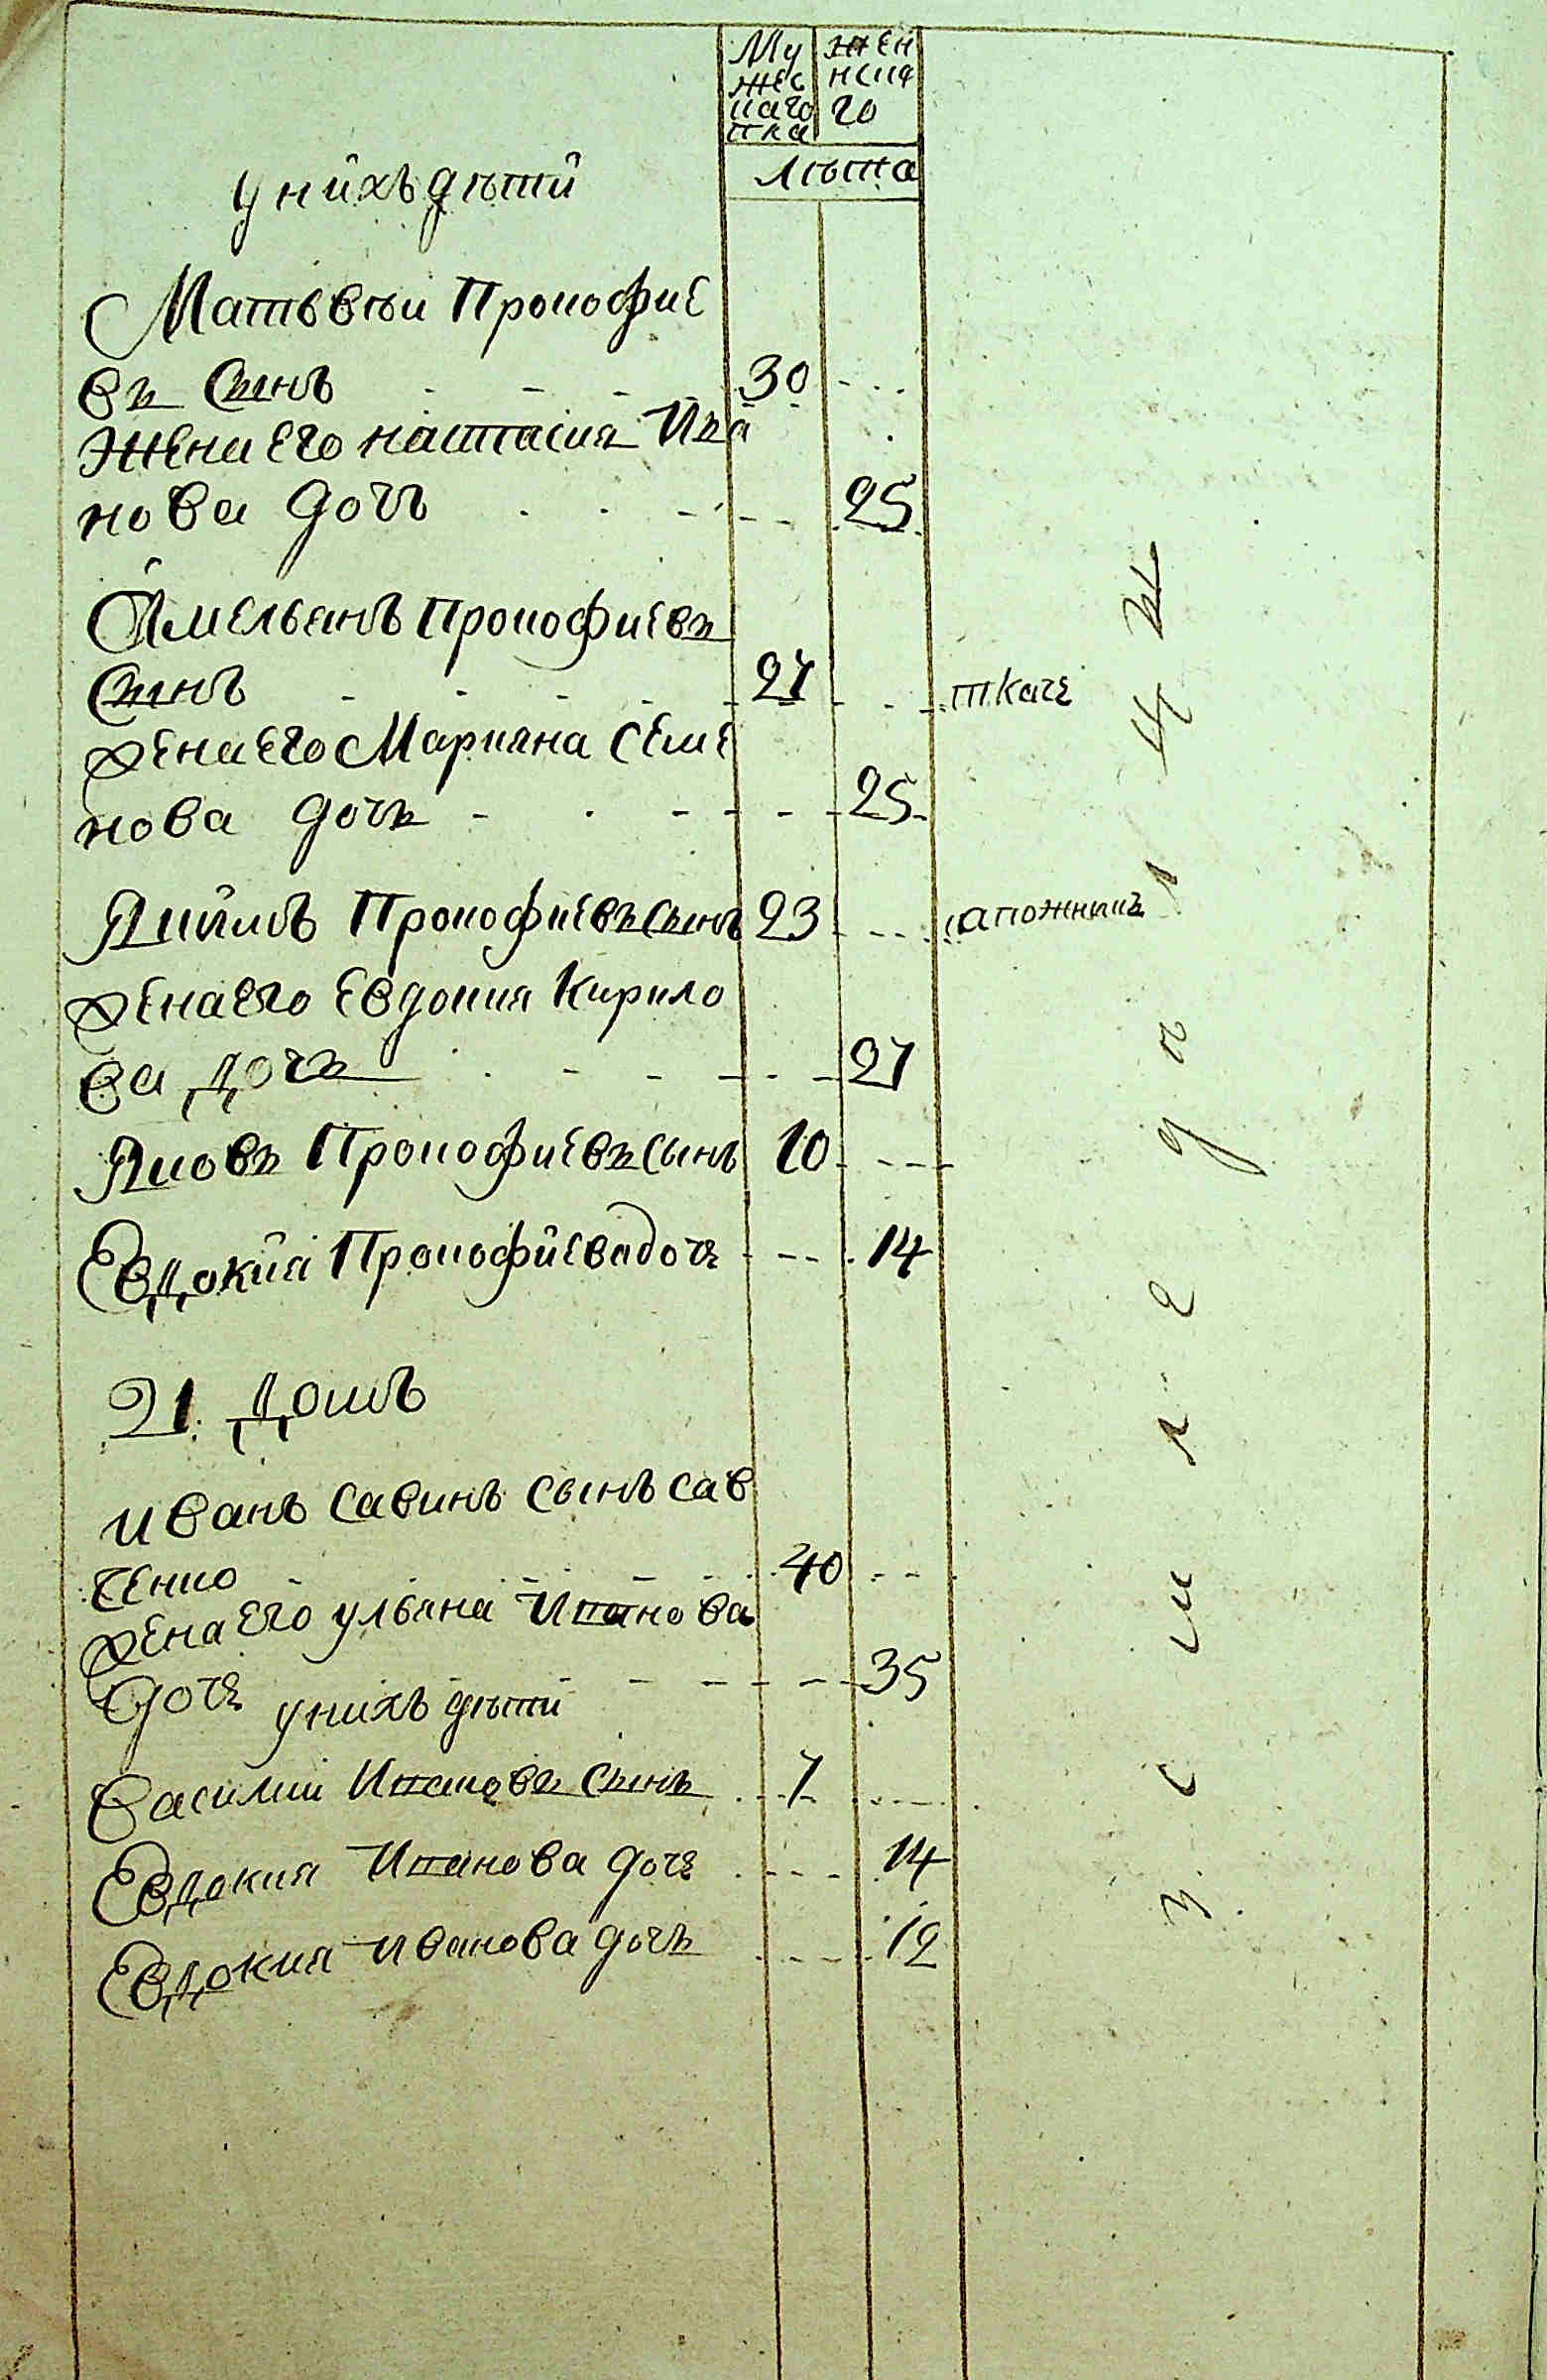 Му жен
жес нска
каго го
пка
лѣта
у нихъ дѣти
Матьвѣи Прокофие
въ Сынъ 30
жена Его настасия Ива
нова дочъ 25
Амельянъ Прокофиевъ
Сынъ 27 ткачь
жена его Марияна Семе
нова дочъ 25
Якимъ Прокофиевъ сынъ 23 сапожникъ
жена его Евдокия Кирило
ва дочъ 27
Яковъ Прокофиевъ сынъ 10
Евдокия Прокофиева дочь 14
21 Домъ
Иванъ Савинъ сынъ сав
ченко 40
жена Его ульяна Иванова
дочь 35
у нихъ дѣти
Василии Ивановъ Сынъ 7
Евдокия Иванова дочь 14
Евдокия Иванова дочъ 12